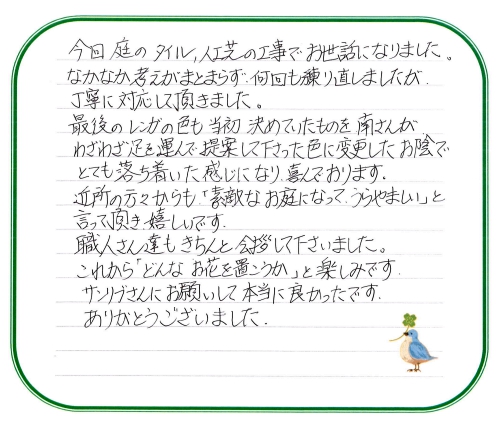 今回 庭の タイル,人工芝の工事で お世話になりました。
なかなか 考えがまとまらず 何回も練り直しましたが、
丁寧に対応して頂きました。
最後の レンガの色も 当初 決めていたものを 南さんが
わざわざ足を運んで 提案して下さった色に変更したお陰で
とても 落ち着いた感じになり 喜んでおります。
近所の方々からも「素敵な お庭になって うらやましい」と
言って頂き 嬉しいです。
職人さん達も きちんと 挨拶して下さいました。
これから「どんな お花を置こうか」と 楽しみです。
サンリブさんにお願いして 本当に良かったです.
ありがとうございました.